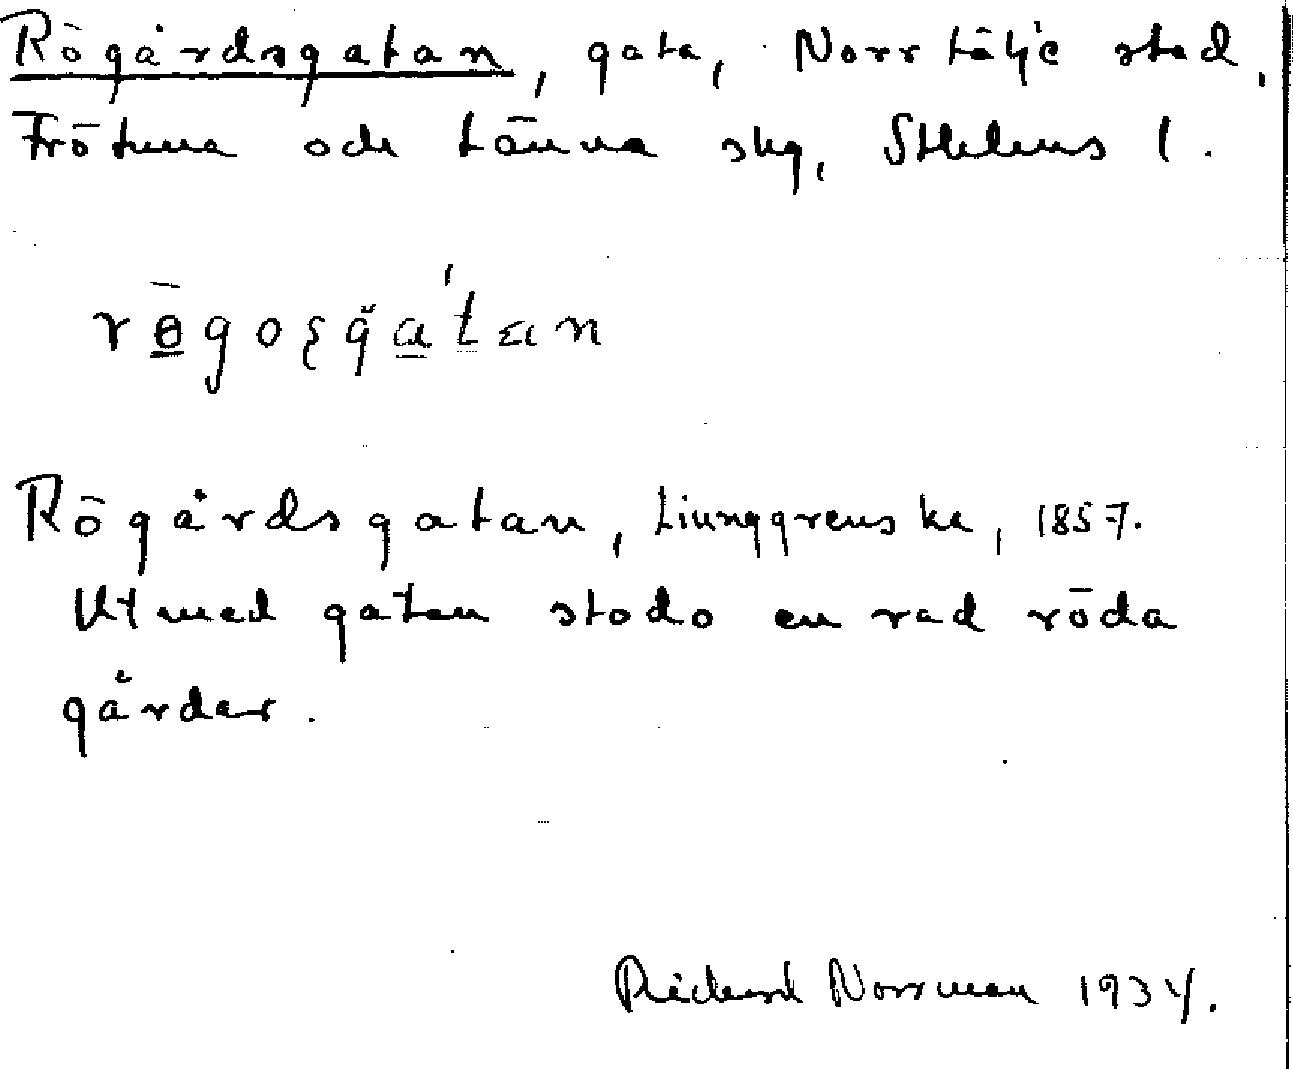 Rögårdsgatan, gata, Norrtälje stad,
Frötuna och Länna skg, Sthlms l.
Rögårdsgatan, Liunggrens ka, 1857.
Utmed gatan stodo en rad röda
gårdar.
Richard Norrman 1934.